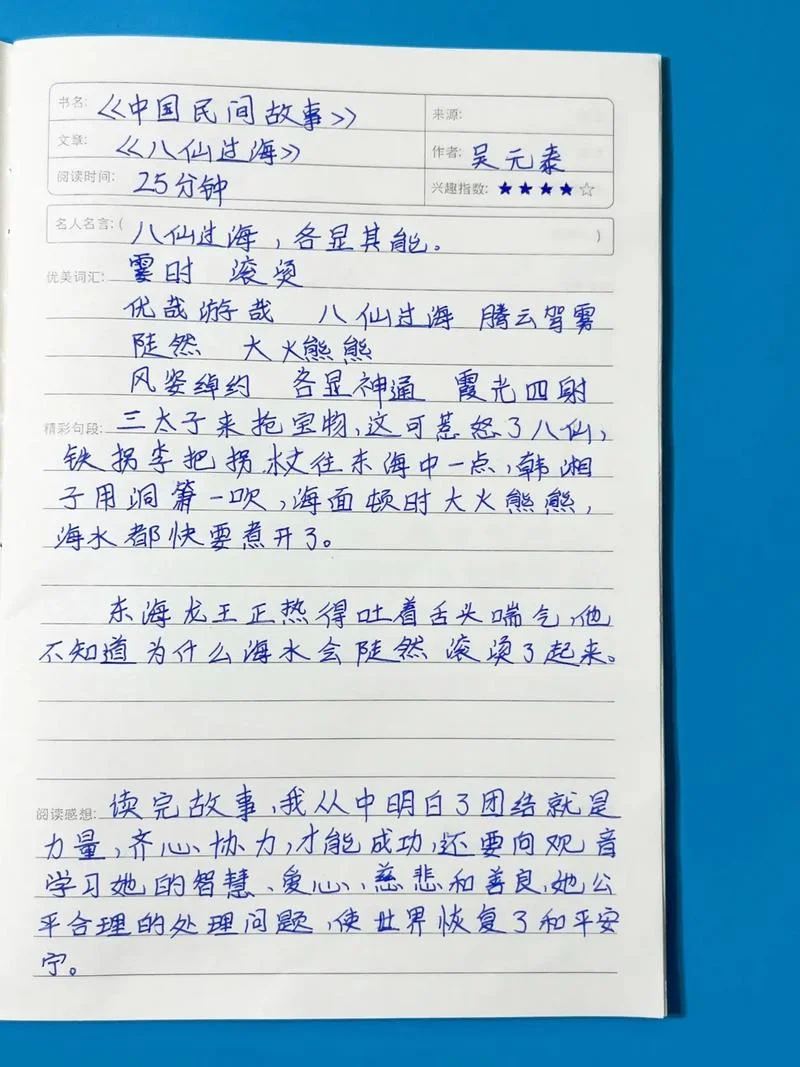 书名:《中国民间故事》 来源:
文章:《八仙过海》 作者:吴元泰
阅读时间:25分钟 兴趣指数:★★★★☆
名人名言:(八仙过海,各显其能。)
优美词汇:霎时 滚烫
优哉游哉 八仙过海 腾云驾雾
陡然 大火熊熊
风姿绰约 各显神通 霞光四射
精彩句段:三太子来抢宝物,这可惹怒了八仙,
铁拐李把拐杖往东海中一点,韩湘
子用洞箫一吹,海面顿时大火熊熊,
海水都快要煮开了。
东海龙王正热得吐着舌头喘气,他
不知道为什么海水会陡然滚烫了起来。
阅读感想:读完故事,我从中明白了团结就是
力量,齐心、协力,才能成功,还要向观音
学习她的智慧、爱心、慈悲和善良,她公
平合理的处理问题,使世界恢复了和平安
宁。